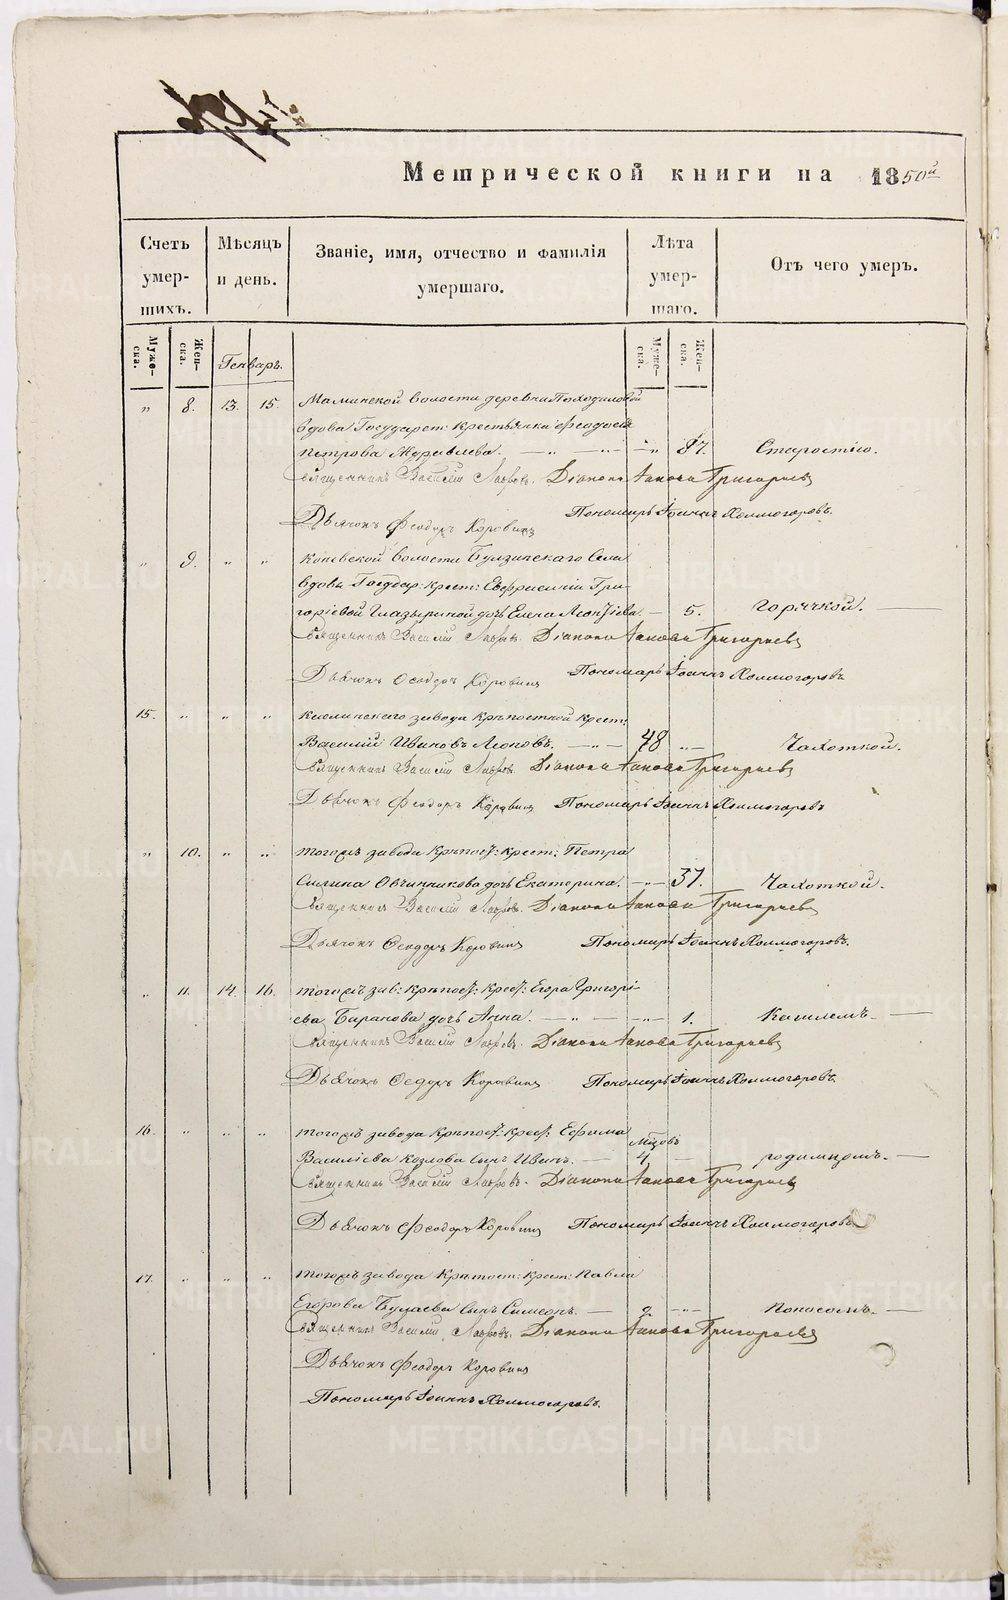 Метрической книги на 1850й
Счетъ умершихъ.
Мѣсяцъ и день.
Званіе, имя, отчество и фамилія умершаго.
Лѣта умершаго.
Отъ чего умеръ.
Мужеска.
Женска.
Генварь.
Мужеска.
Женска.
Маминской волости деревни Походиловой
„ 8. 13. 15. вдова Государст: крестьянка Феодосія
Петрова Журавлева. „ 87. Старостію.
Священникъ Василій Лавровъ. Діаконъ Іаковъ Григорьевъ
Дьячокъ Феодоръ Коровинъ Пономарь Іоаннъ Холмогоровъ.
„ 9. „ „ Коневской волости Булзинскаго села
вдовы Государ: крест: Евфросиніи Гри-
горіевой Глазыриной дочь Елена Леонтіева. 5. Горячкой.
Священникъ Василій Лавровъ. Діаконъ Іаковъ Григорьевъ
Дьячокъ Феодоръ Коровинъ Пономарь Іоаннъ Холмогоровъ
15. „ „ „ Каслинскаго завода крѣпостной крест:
Василій Ивановъ Леоновъ. 48 „ Чахоткой.
Священникъ Василій Лавровъ. Діаконъ Іаковъ Григорьевъ
Дьячокъ Феодоръ Коровинъ Пономарь Іоаннъ Холмогоровъ
„ 10. „ „ тогожъ завода крѣпост: крест: Петра
Силина Овчинникова дочь Екатерина. „ 37. Чахоткой.
Священникъ Василій Лавровъ. Діаконъ Іаковъ Григорьевъ
Дьячокъ Феодоръ Коровинъ Пономарь Іоаннъ Холмогоровъ.
„ 11. 14. 16. тогожъ зав: крѣпост: крест: Егора Григорі-
ева Баранова дочь Анна. „ 1. Кашлемъ.
Священникъ Василій Лавровъ. Діаконъ Іаковъ Григорьевъ
Дьячокъ Феодоръ Коровинъ Пономарь Іоаннъ Холмогоровъ.
16. „ „ „ тогожъ завода крѣпост: крест: Ефима
Василіева Козлова сынъ Иванъ. мцовъ 4 родимцомъ.
Священникъ Василій Лавровъ. Діаконъ Іаковъ Григорьевъ
Дьячокъ Феодоръ Коровинъ Пономарь Іоаннъ Холмогоровъ
17. „ „ „ тогожъ завода крѣпост: крест: Павла
Егорова Булаева сынъ Симеонъ. 2. „ Поносомъ.
Священникъ Василій Лавровъ. Діаконъ Іаковъ Григорьевъ
Дьячокъ Феодоръ Коровинъ
Пономарь Іоаннъ Холмогоровъ.
METRIKI.GASO-URAL.RU